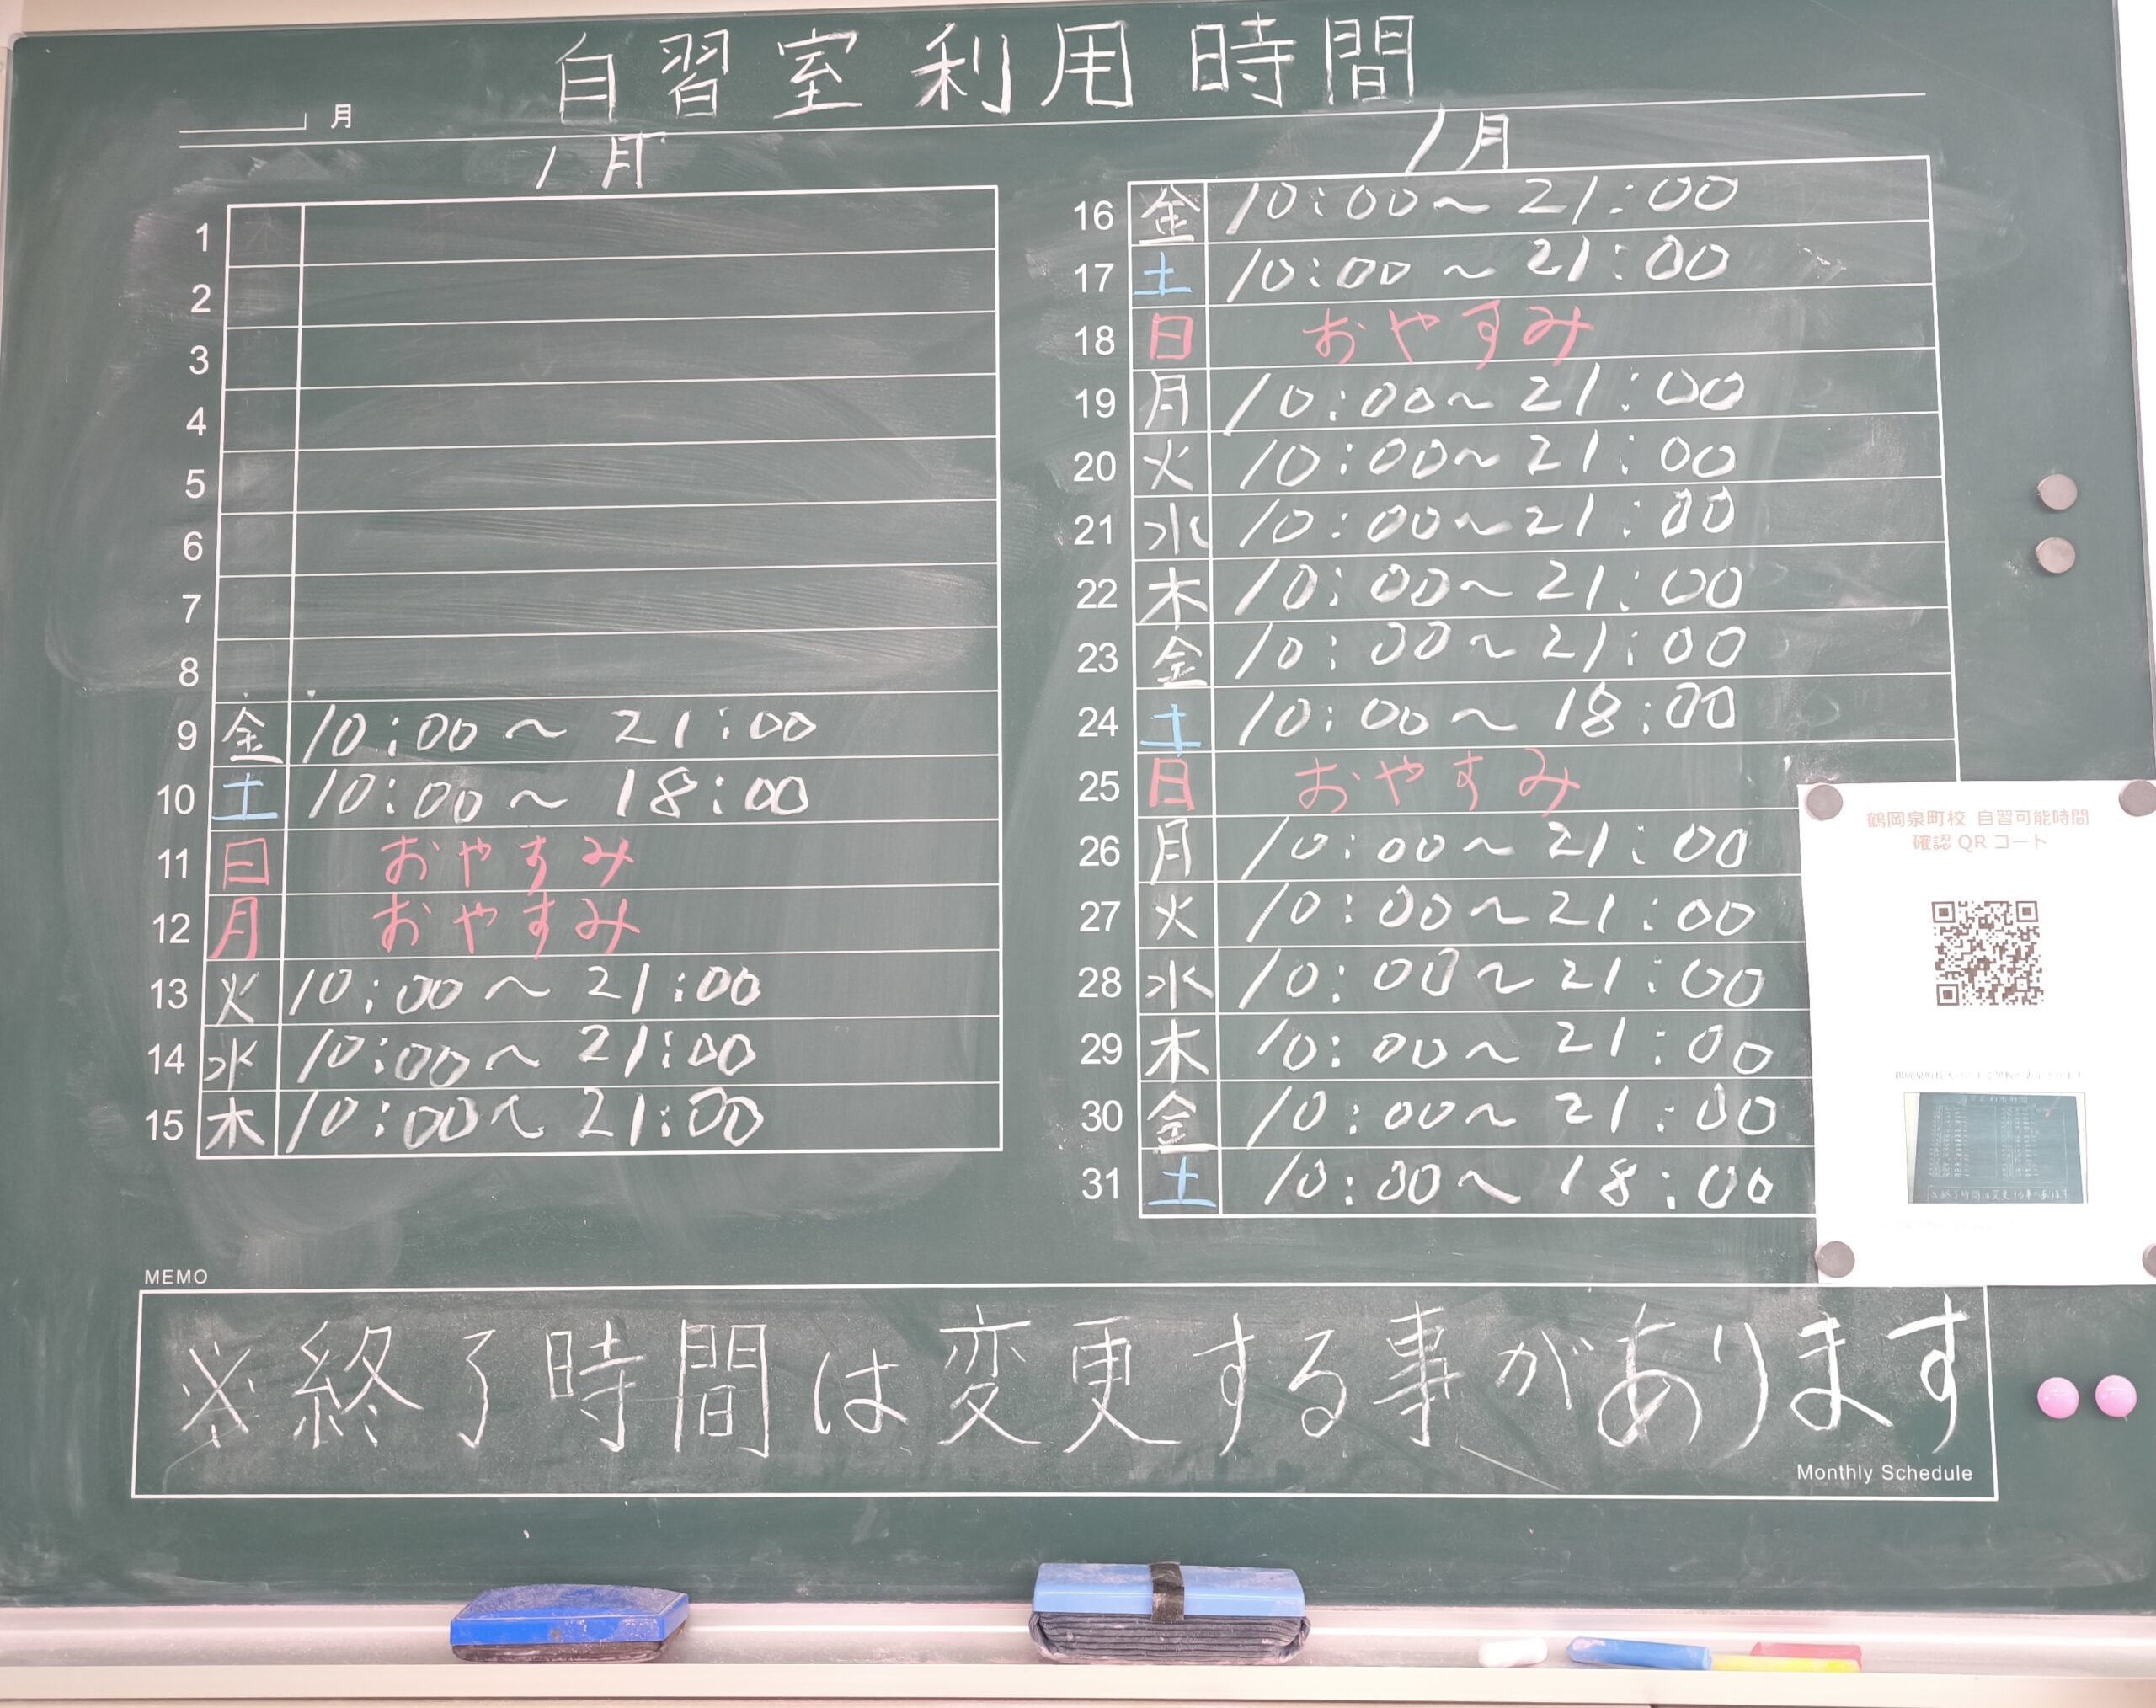 自習室利用時間
月
1月
1
2
3
4
5
6
7
8
9 金 10:00～21:00
10 土 10:00～18:00
11 日 おやすみ
12 月 おやすみ
13 火 10:00～21:00
14 水 10:00～21:00
15 木 10:00～21:00
1月
16 金 10:00～21:00
17 土 10:00～21:00
18 日 おやすみ
19 月 10:00～21:00
20 火 10:00～21:00
21 水 10:00～21:00
22 木 10:00～21:00
23 金 10:00～21:00
24 土 10:00～18:00
25 日 おやすみ
26 月 10:00～21:00
27 火 10:00～21:00
28 水 10:00～21:00
29 木 10:00～21:00
30 金 10:00～21:00
31 土 10:00～18:00
鶴岡泉町校 自習可能時間
確認 QR コード
MEMO
※終了時間は変更する事があります
Monthly Schedule